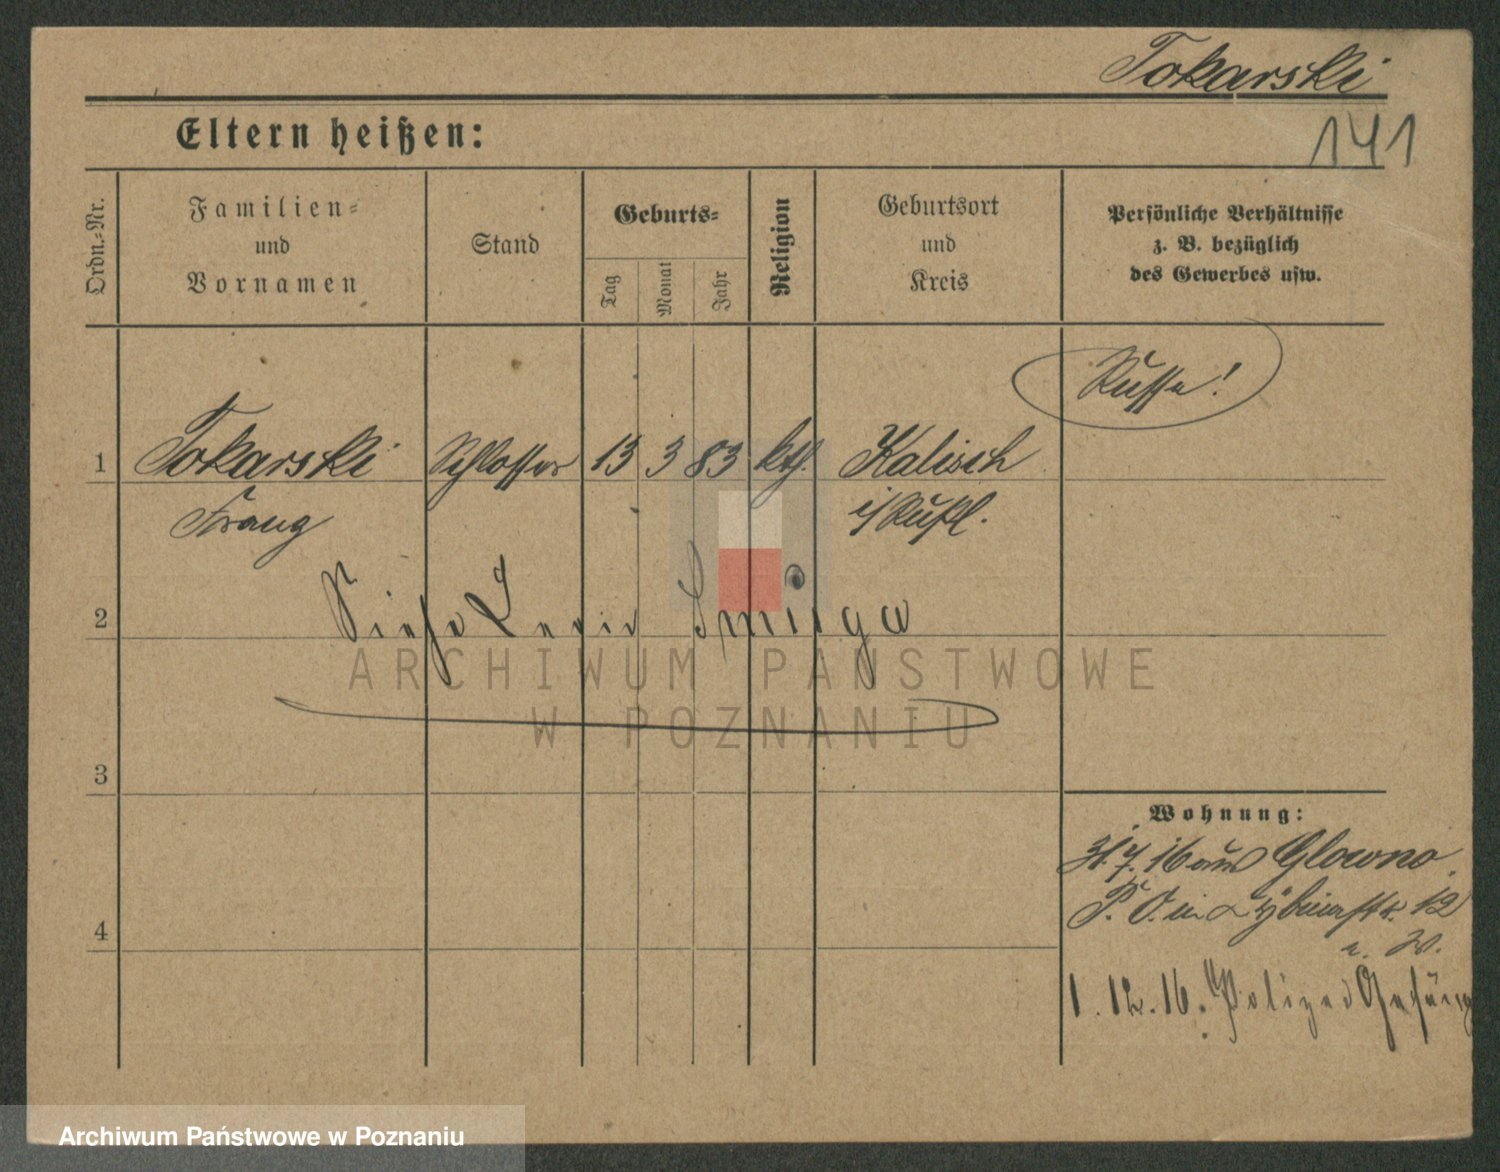 Tokarski
141
Eltern heißen:
Ordn.-Nr.
Familien-
und
Vornamen
Stand
Geburts-
Tag
Monat
Jahr
Religion
Geburtsort
und
Kreis
Persönliche Verhältnisse
z. B. bezüglich
des Gewerbes usw.
Russe!
1 Tokarski Schlosser 13 3 83 kth. Kalisch
Franz i/Rußl.
2 Siehe
3
4
Wohnung:
31.7.16 aus Glowno
P. O. in 12
1.12.16. Polizei Gefäng
ARCHIWUM PAŃSTWOWE
W POZNANIU
Archiwum Państwowe w Poznaniu